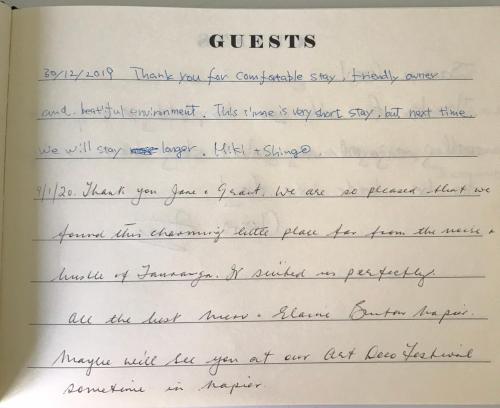 GUESTS
30/12/2019 Thank you for comfortable stay, friendly owner
and beatiful environment. This time is very short stay, but next time
we will stay longer. Miki + Shingo
9/1/20. Thank you Jane & Grant. We are so pleased that we
found this charming little place far from the noise +
hustle of Tauranga. It suited us perfectly.
All the best Merv & Elaine Benton Napier.
Maybe we'll see you at our Art Deco Festival
sometime in Napier.